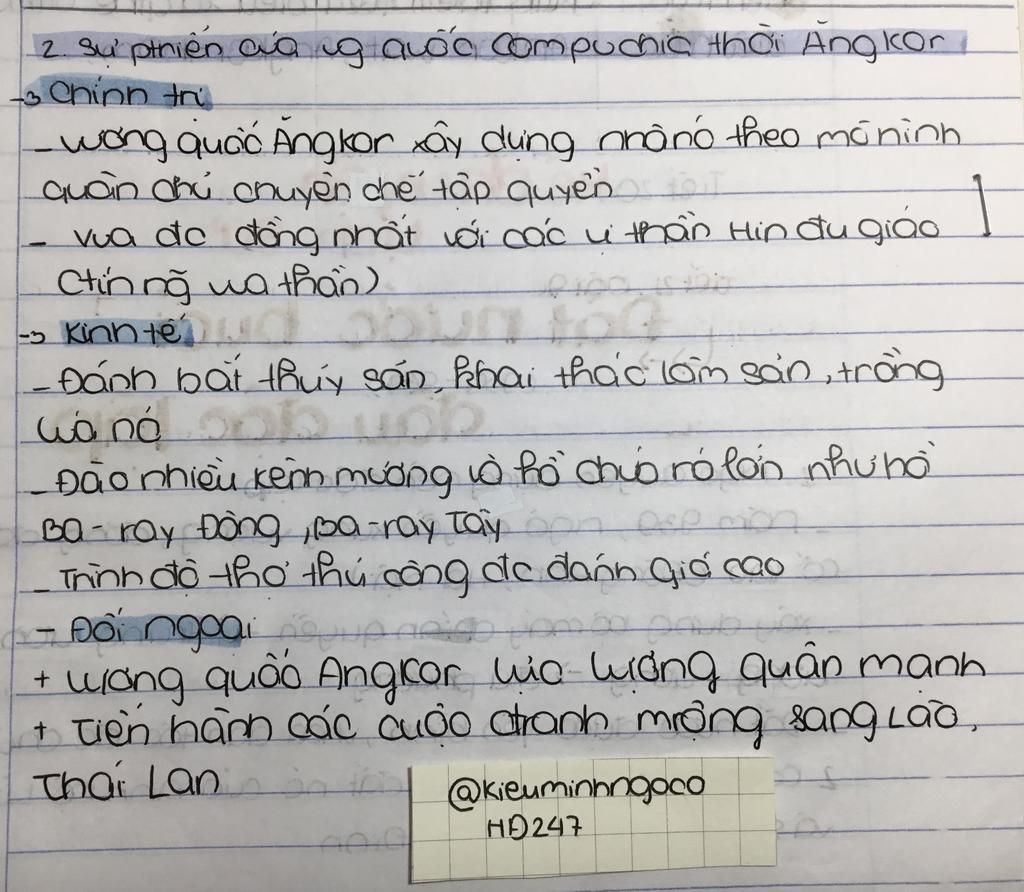 2. Sự ptriển của vg quốc Campuchia thời Ăngkor
→ Chính trị
- Vương quốc Ăngkor xây dựng nhà nc theo mô hình
quân chủ chuyên chế tập quyền
- Vua đc đồng nhất với các vị thần Hin đu giáo
(tín ng vua thần)
→ Kinh tế
- Đánh bắt thủy sản, khai thác lâm sản, trồng
lúa nc
- Đào nhiều kênh mương và hồ chứa rỏ lớn như hồ
Ba-ray Đông, Ba-ray Tây
- Trình độ thợ thủ công đc đánh giá cao
- Đối ngoại
+ Vương quốc Angkor lực lượng quân mạnh
+ Tiến hành các cuộc ctranh mrộng sang Lào,
Thái Lan
@kieuminhngoco
HĐ247